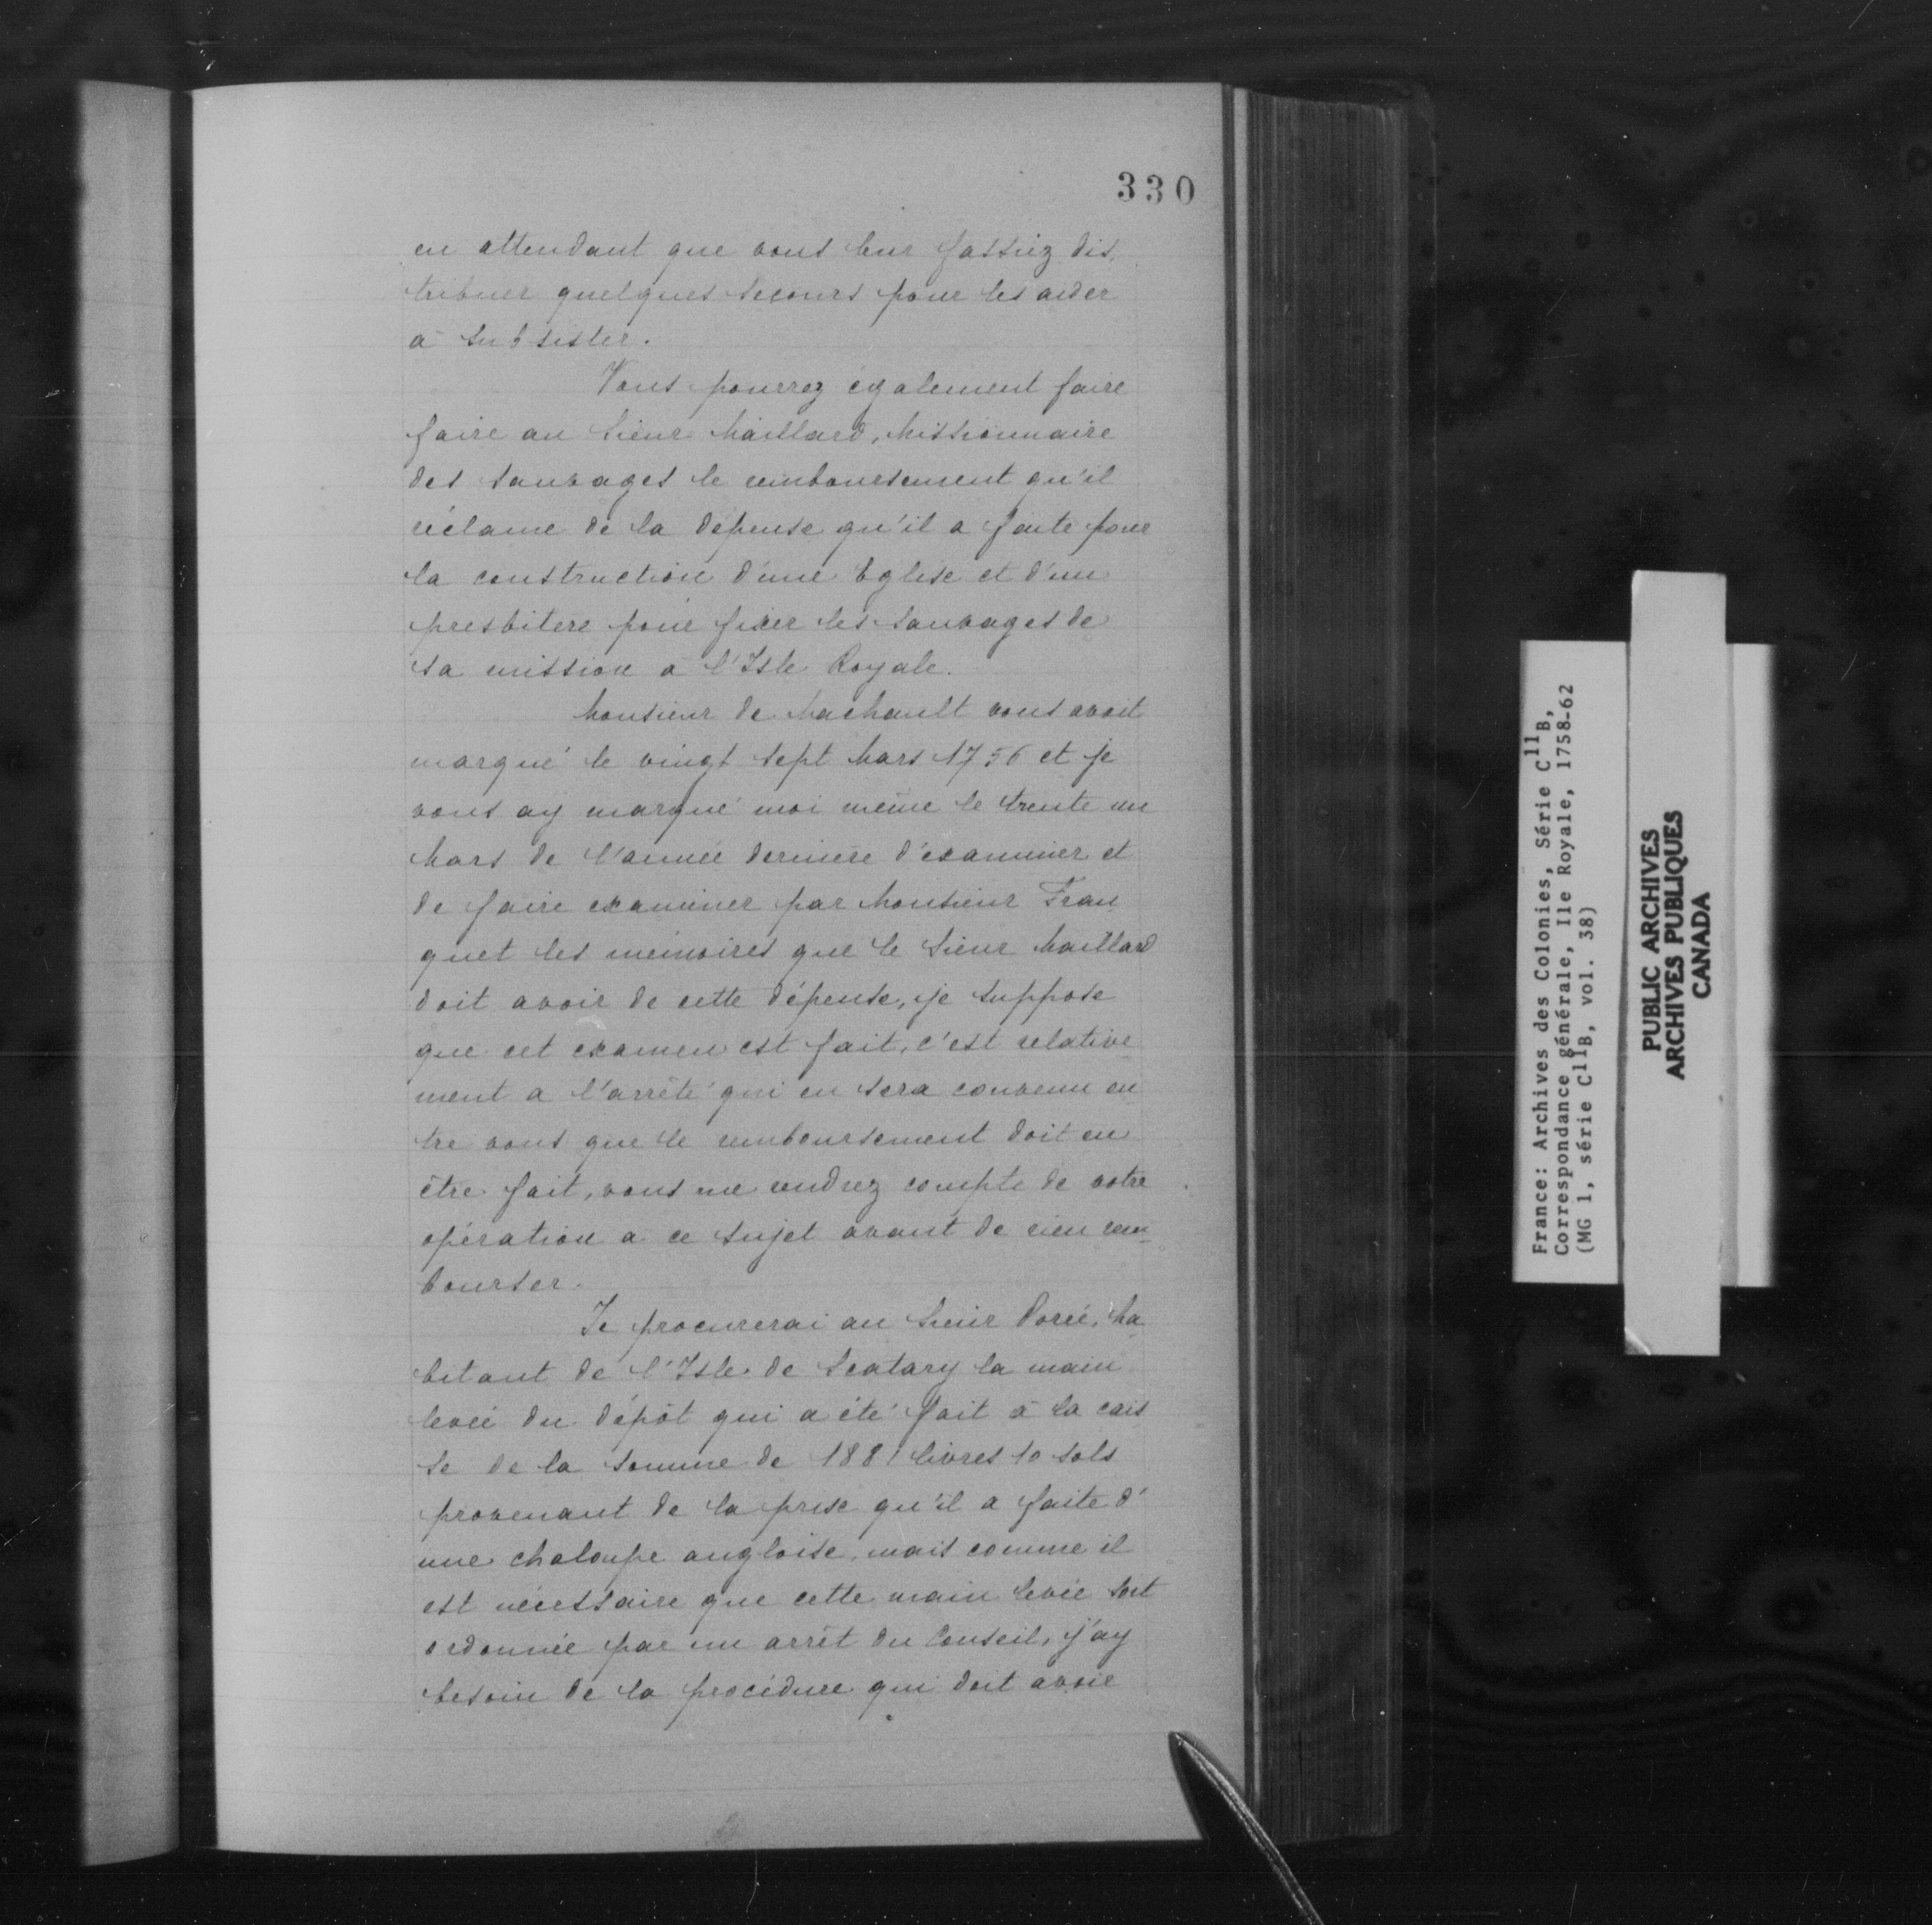 330
en attendant que vous leur fassiez dis,
tribuer quelques secours pour les aider
à subsister.
Vous pourrez également faire
faire au Sieur Maillard, Missionnaire
des sauvages le remboursement qu'il
réclame de la dépense qu'il a faite pour
la construction d'une Eglise et d'un
presbitere pour fixer les sauvages de
sa mission à l'Isle Royale.
Monsieur de Machault vous avoit
marqué le vingt sept Mars 1756 et je
vous ay marqué moi même le trente un
Mars de l'année derniere d'examiner et
de faire examiner par Monsieur Fran
quet les mémoires que le Sieur Maillard
doit avoir de cette dépense, je suppose
que cet examen est fait, c'est relative
ment a l'arrêté qui en sera convenu en
tre vous que le remboursement doit en
être fait, vous me rendrez compte de votre
opération a ce sujet avant de rien rem
bourser.
Je procurerai au Sieur Dorée, ha
bitant de l'Isle de Scatary la main
levée du dépôt qui a été fait à la cais
se de la somme de 1881 livres 10 sols
provenant de la prise qu'il a faite d'
une chaloupe angloise, mais comme il
est nécessaire que cette main levée soit
ordonnée par un arrêt du Conseil, j'ay
besoin de la procédure qui doit avoir
France: Archives des Colonies, Série C11B,
Correspondance générale, Ile Royale, 1758-62
(MG 1, série C11B, vol. 38)
PUBLIC ARCHIVES
ARCHIVES PUBLIQUES
CANADA